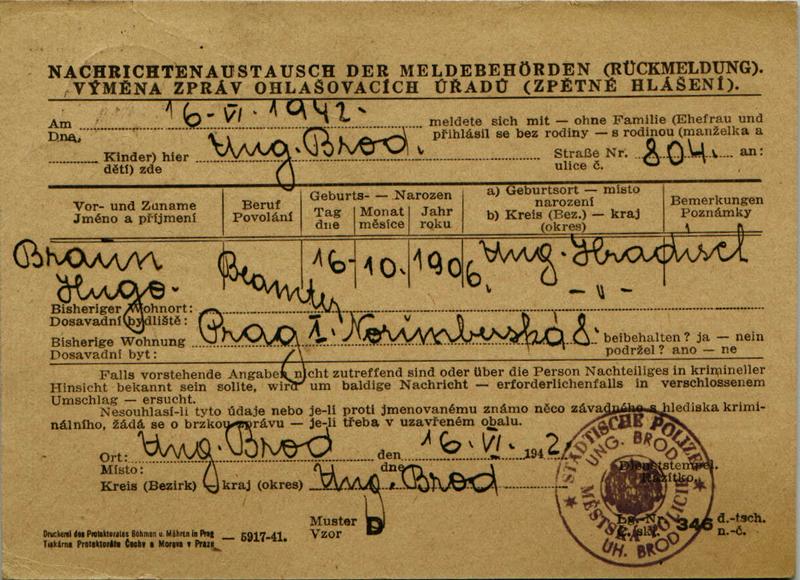 NACHRICHTENAUSTAUSCH DER MELDEBEHÖRDEN (RÜCKMELDUNG).
VÝMĚNA ZPRÁV OHLAŠOVACÍCH ÚŘADŮ (ZPĚTNÉ HLÁŠENÍ).
Am 16-VI.1942. meldete sich mit — ohne Familie (Ehefrau und
Dne přihlásil se bez rodiny — s rodinou (manželka a
Kinder) hier Ung. Brod. Straße Nr. 804. an:
děti) zde ulice č.
Vor- und Zuname Beruf Geburts- — Narozen a) Geburtsort — místo Bemerkungen
Jméno a příjmení Povolání Tag Monat Jahr narození Poznámky
dne měsíce roku b) Kreis (Bez.) — kraj
(okres)
Braun Beamter 16- 10. 1906. Ung. Hradisch
Hugo. - " -
Bisheriger Wohnort:
Dosavadní bydliště:
Bisherige Wohnung Prag I. Norimberská 8. beibehalten? ja — nein
Dosavadní byt: podržel? ano — ne
Falls vorstehende Angaben nicht zutreffend sind oder über die Person Nachteiliges in krimineller
Hinsicht bekannt sein sollte, wird um baldige Nachricht — erforderlichenfalls in verschlossenem
Umschlag — ersucht.
Nesouhlasí-li tyto údaje nebo je-li proti jmenovanému známo něco závadného s hlediska krimi-
nálního, žádá se o brzkou zprávu — je-li třeba v uzavřeném obalu.
Ort: Ung. Brod den 16. VI. 1942.
Místo: dne
Kreis (Bezirk) kraj (okres) Ung. Brod
Dienststempel.
Razítko.
STÄDTISCHE POLIZEI
UNG. BROD
MĚSTSKÁ POLICIE
UH. BROD
Muster D 346 d.-tsch.
Vzor n.-č.
Druckerei des Protektorates Böhmen u. Mähren in Prag — 5917-41.
Tiskárna Protektorátu Čechy a Morava v Praze